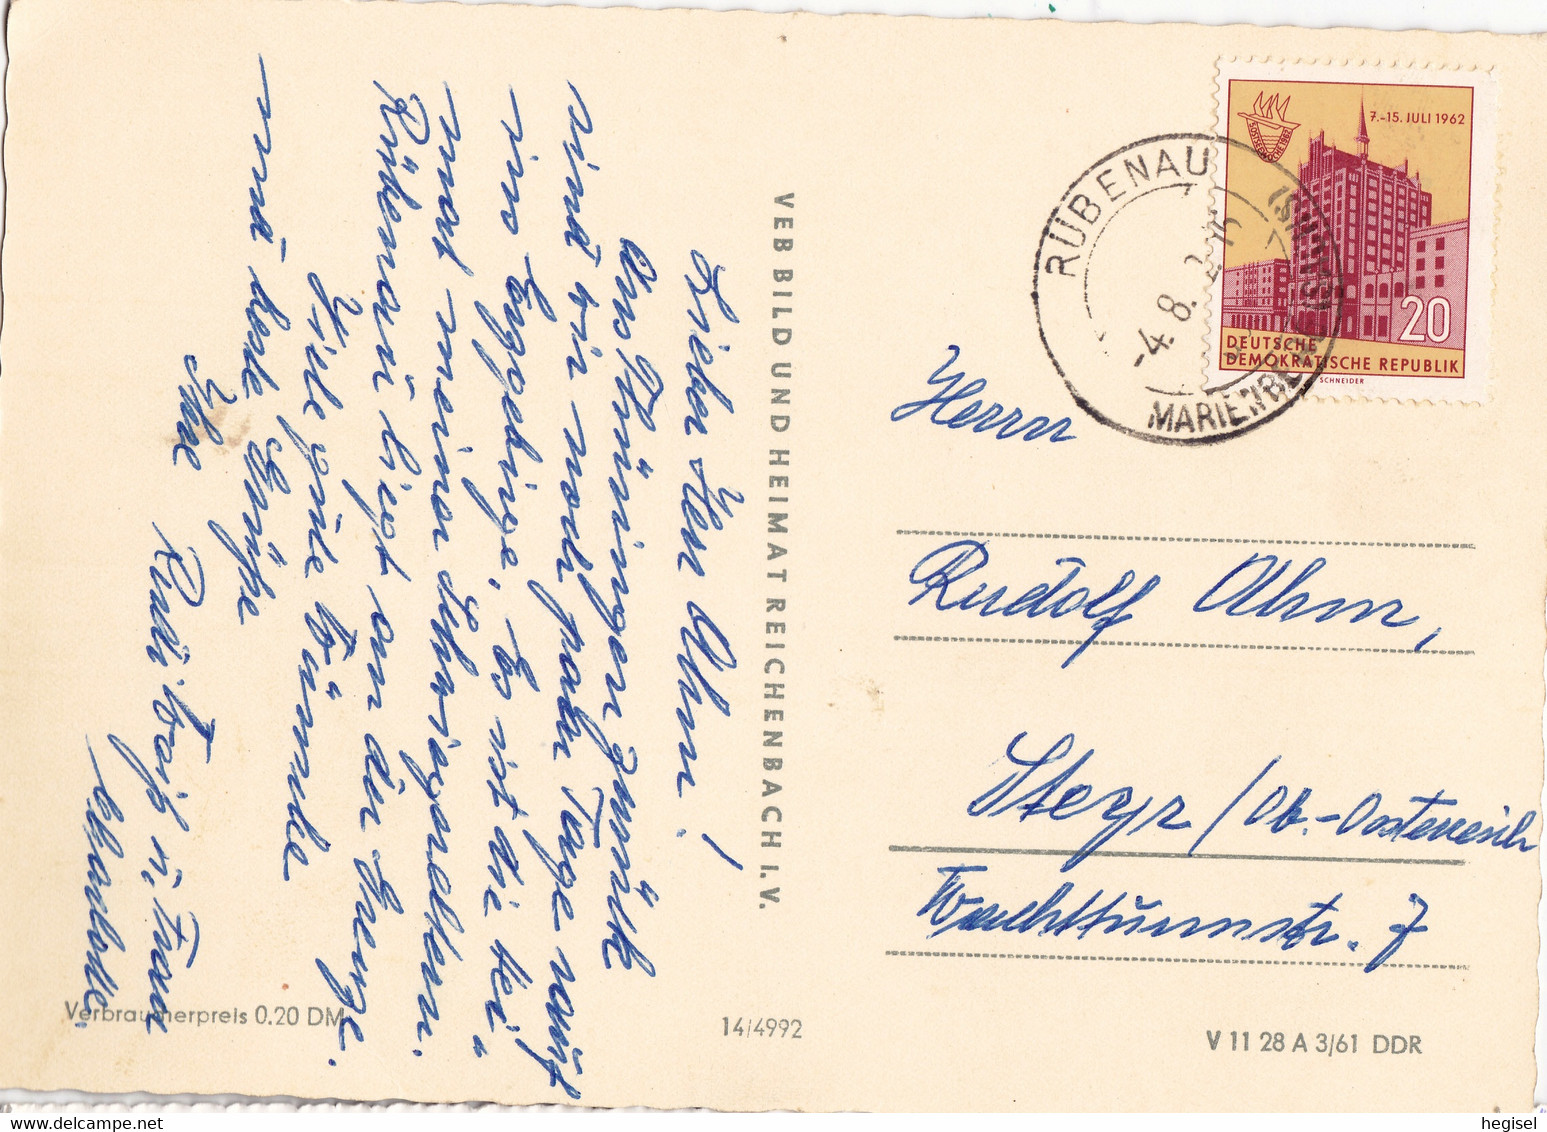 Lieber Herr Ohm!
Aus Thüringen zurück
sind wir noch paar Tage ins
Erzgebirge. Es ist die Hei-
mat meiner Schwiegereltern.
Rübenau liegt an der Grenze.
Viele gute Wünsche
und beste Grüße
Ihre
Rudi Weiß u. Frau
Charlotte.
VEB BILD UND HEIMAT REICHENBACH I. V.
Verbraucherpreis 0.20 DM
14/4992
V 11 28 A 3/61 DDR
7.-15. JULI 1962
OSTSEEWOCHE 1962
20
DEUTSCHE
DEMOKRATISCHE REPUBLIK
SCHNEIDER
RÜBENAU
-4. 8.
MARIENBERG
Herrn
Rudolf Ohm,
Steyr / Ob.-Oesterreich
Wachtturmstr. 7
hegisel